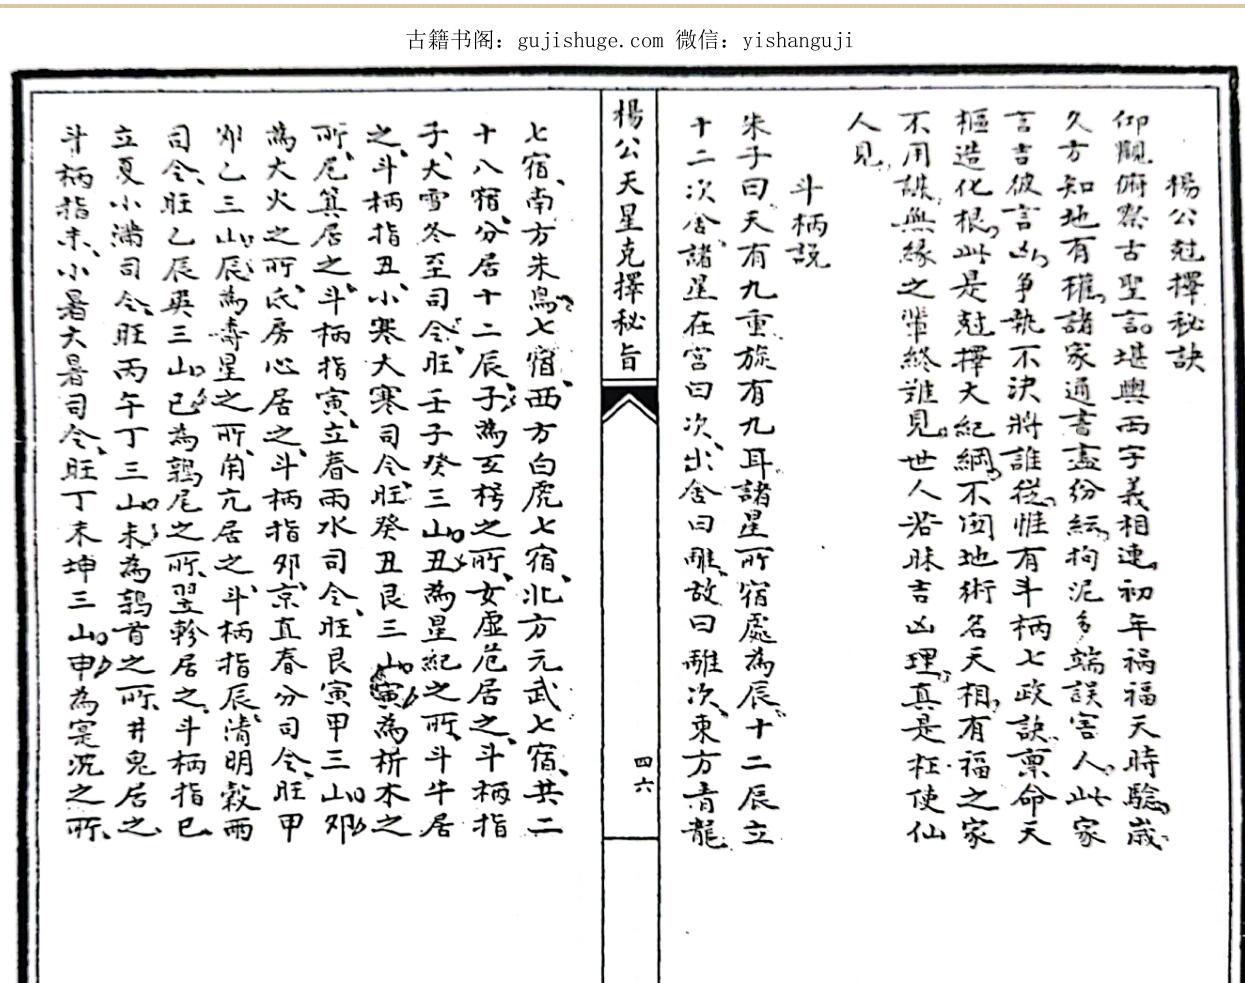 古籍书阁：gujishuge.com 微信：yishanguji
楊公尅擇秘訣
仰觀俯察古聖言。堪輿兩字義相連。初年禍福天時驗。歲
久方知地有權。諸家通書盡紛紜。拘泥多端誤害人。此家
言吉彼言凶。爭執不決將誰從。惟有斗柄七政訣。禀命天
樞造化根。此是尅擇大紀綱。不図地術名天相。有福之家
不用謀。無緣之輩終誰見。世人若昧吉凶理。真是枉使仙
人見。
斗柄説
朱子曰天有九重旋有九耳。諸星所宿處為辰。十二辰立
十二次舍、諸星在宮曰次、出舍曰離、故曰離次、東方青龍
楊公天星克擇秘旨
四六
七宿、南方朱鳥七宿、西方白虎七宿、北方元武七宿、共二
十八宿、分居十二辰、子為玄枵之所、女虛危居之、斗柄指
子、大雪冬至司令、旺壬子癸三山、丑為星紀之所、斗牛居
之、斗柄指丑、小寒大寒司令、旺癸丑艮三山、寅為析木之
所、尾箕居之、斗柄指寅、立春雨水司令、旺艮寅甲三山、卯
為大火之所、氐房心居之、斗柄指卯、京直春分司令、旺甲
卯乙三山、辰為壽星之所、角亢居之、斗柄指辰、清明穀雨
司令、旺乙辰巽三山、巳為鶉尾之所、翌軫居之、斗柄指巳
立夏小滿司令、旺丙午丁三山、未為鶉首之所、井鬼居之、
斗柄指未、小暑大暑司令、旺丁未坤三山、申為寔沉之所、